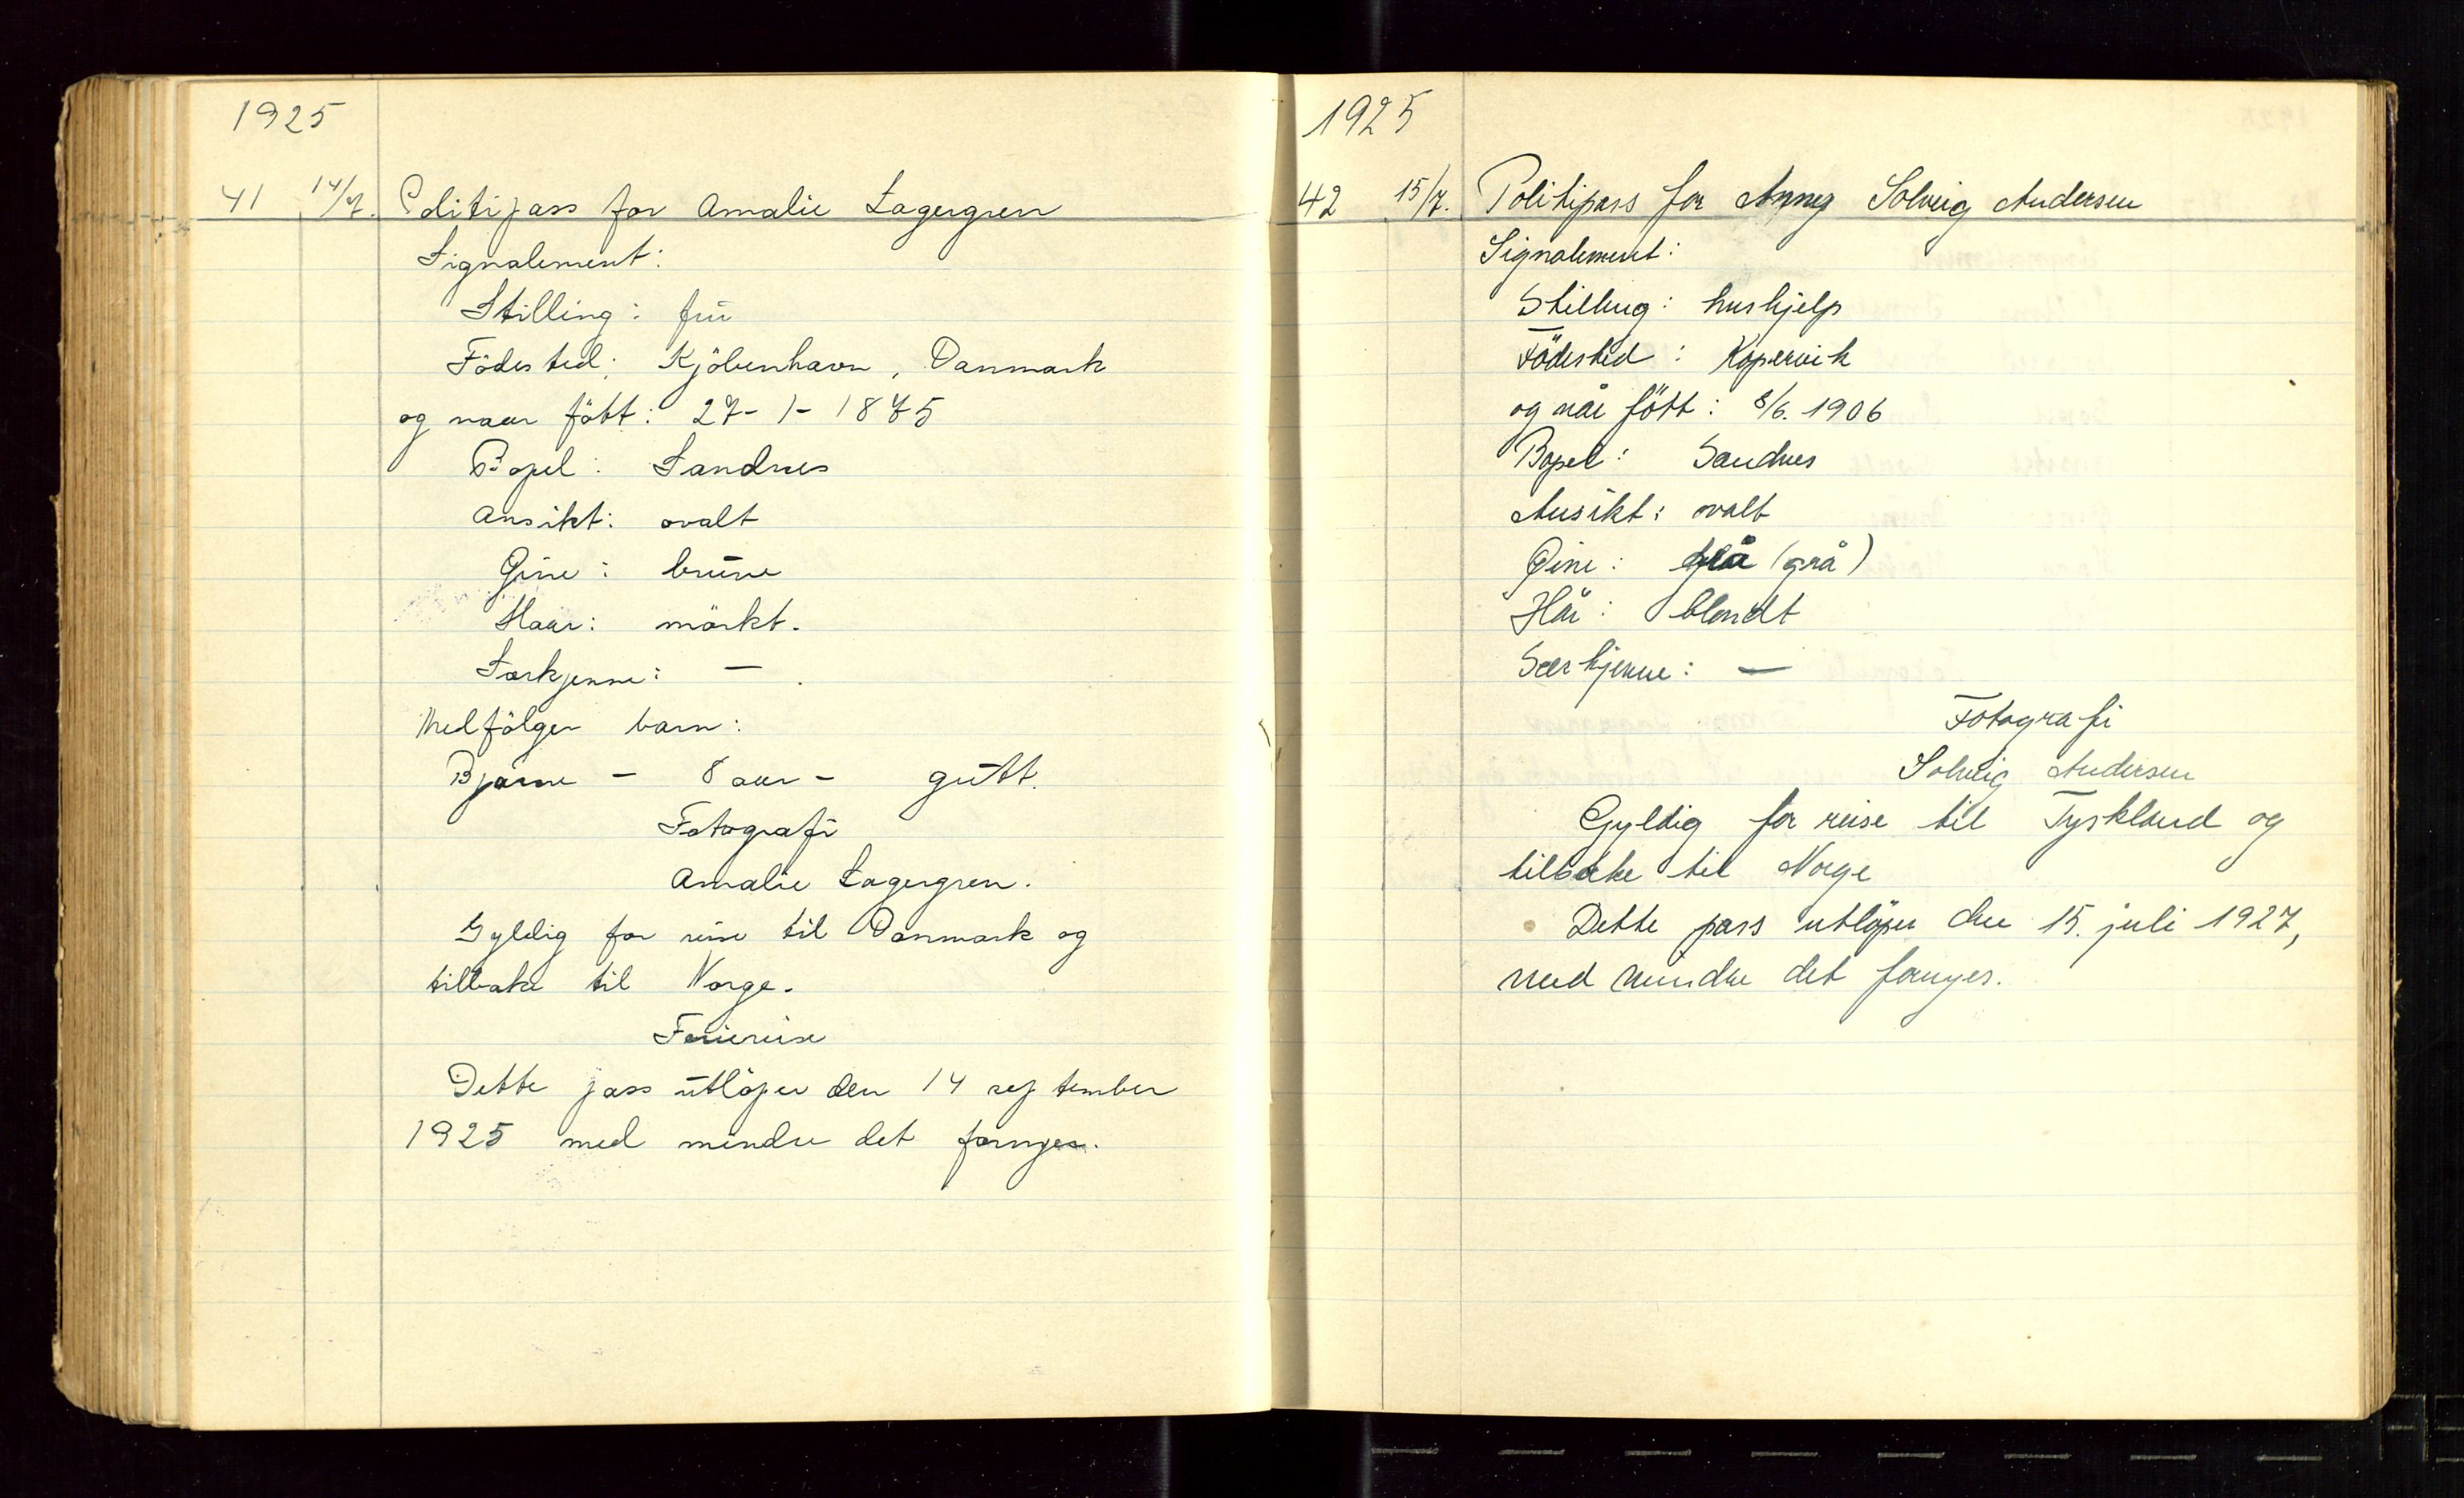 1925
41 14/7. Politipass for Amalie Lagergren
Signalement:
Stilling: frü
Födested: Kjöbenhavn, Danmark
og naar fött: 27-1-1875
Bopel: Sandnes
Ansikt: ovalt
Öine: brüne
Haar: mörkt.
Særkjenne: — .
Medfölger barn:
Bjarne - 8 aar - gütt.
Fotografi
Amalie Lagergren.
Gyldig for reise til Danmark og
tilbake til Norge.
Feriereise
Dette pass ütlöper den 14 september
1925 med mindre det fornyes.
1925
42 15/7. Politipass for Anny Solveig Andersen
Signalement:
Stilling: hushjelp
Födested: Kopervik
og når fött: 8/6. 1906
Bopel: Sandnes
Ansikt: ovalt
Øine: blå (grå)
Hår: blondt
Særkjenne: —
Fotografi
Solveig Andersen
Gyldig for reise til Tyskland og
tilbake til Norge
Dette pass utlöper den 15. juli 1927,
med mindre det fornyes.